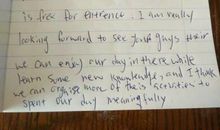 is free for entrence. I am really
looking forward to see you guys their
we can enjoy our day in there while
learn some new knowledge, and I think
we can orgnise more of theis activities to
spent our day meaningfully